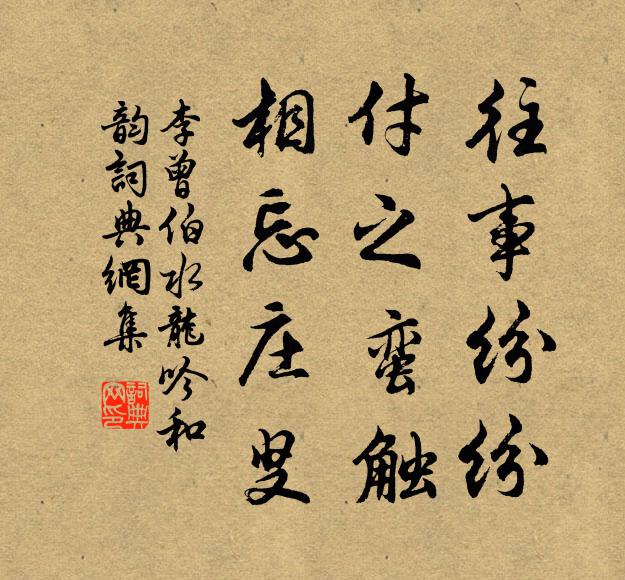 往事纷纷
付之蛮触
相忘庄叟
李曾伯水龍吟和
韵詞典網集
詞典
网印